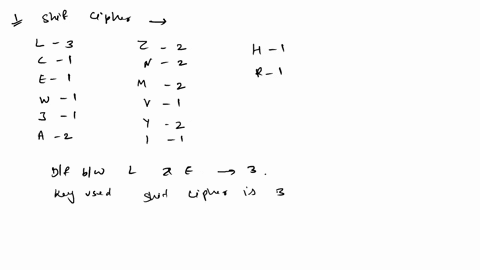 1 Shift Cipher →
L - 3
C - 1
E - 1
W - 1
J - 1
A - 2
Z - 2
N - 2
M - 2
V - 1
Y - 2
I - 1
H - 1
R - 1
b/w L & E → 3.
Key used Shift Cipher is 3